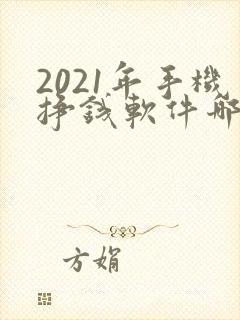 2021年手機
掙錢軟件哪
方娟